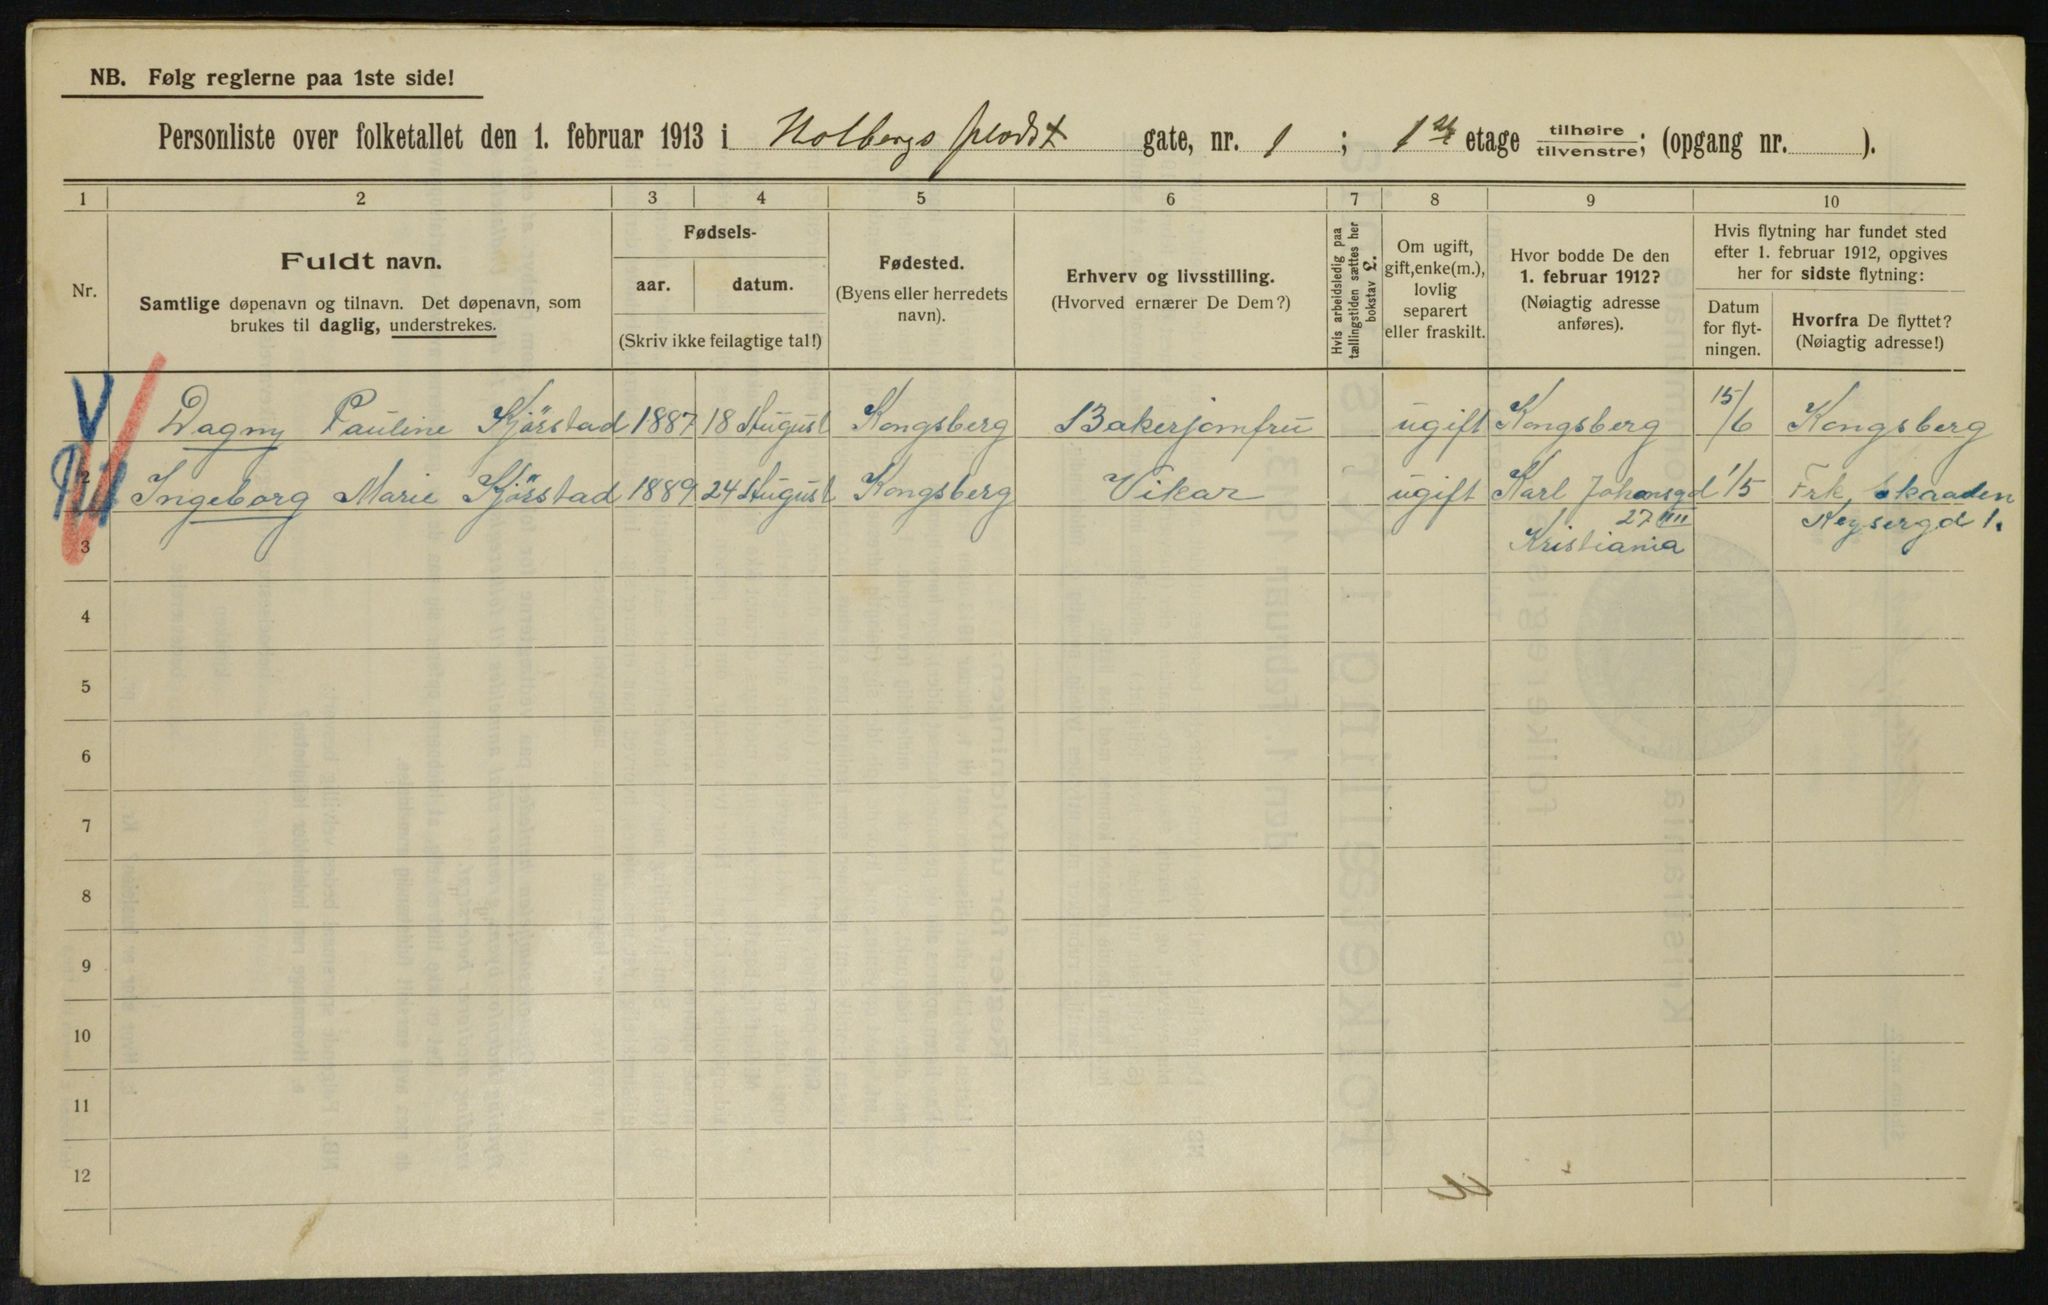 NB. Følg reglerne paa 1ste side!
Personliste over folketallet den 1. februar 1913 i Holbergs plads gate, nr. 1 ; 1ste etage tilhøire tilvenstre; (opgang nr. ).
1 2 3 4 5 6 7 8 9 10
Nr.
Fuldt navn.
Samtlige døpenavn og tilnavn. Det døpenavn, som
brukes til daglig, understrekes.
Fødsels-
aar. datum.
(Skriv ikke feilagtige tal!)
Fødested.
(Byens eller herredets
navn).
Erhverv og livsstilling.
(Hvorved ernærer De Dem?)
Hvis arbeidsledig paa
tællingstiden sættes her
bokstav L.
Om ugift,
gift, enke(m.),
lovlig
separert
eller fraskilt.
Hvor bodde De den
1. februar 1912?
(Nøiagtig adresse
anføres).
Hvis flytning har fundet sted
efter 1. februar 1912, opgives
her for sidste flytning:
Datum
for flyt-
ningen.
Hvorfra De flyttet?
(Nøiagtig adresse!)
Dagny Pauline Kjörstad 1887 18 August Kongsberg Bakerjomfru ugift Kongsberg 15/6 Kongsberg
2 Ingeborg Marie Kjörstad 1889 24 August Kongsberg Vikar ugift Karl Johansgd 1/5 Frk. Skaaden
27 III Keysergd 1.
3 Kristiania
4
5
6
7
8
9
10
11
12